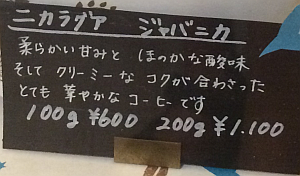 ニカラグア ジャバニカ
柔らかい甘みと ほのかな酸味
そして クリーミーな コクが合わさった
とても 華やかなコーヒーです
100g ¥600 200g ¥1.100